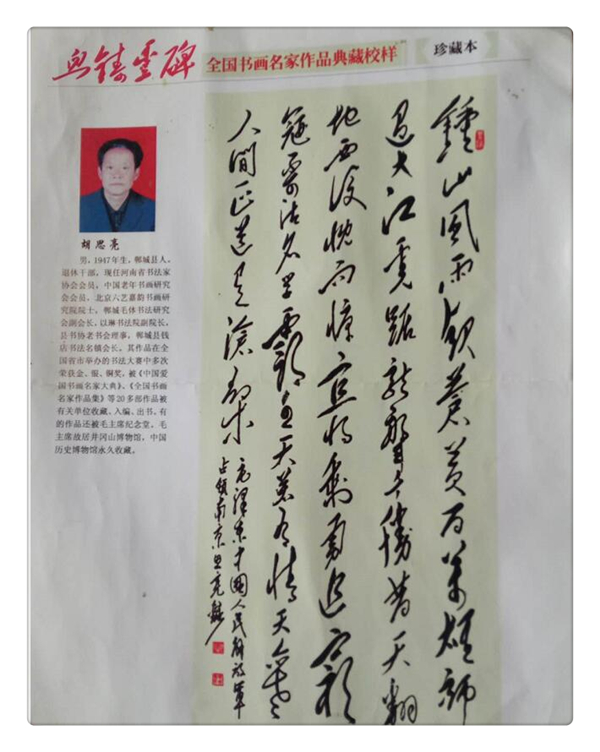 血铸丰碑
全国书画名家作品典藏校样
珍藏本
胡思亮
男，1947年生，郸城县人，
退休干部，现任河南省书法家
协会会员，中国老年书画研究
会会员，北京六艺嘉韵书画研
究院院士，郸城毛体书法研究
会副会长，以琳书法院副院长，
县书协老书会理事，郸城县钱
店书法名镇会长，其作品在全
国省市举办的书法大赛中多次
荣获金、银、铜奖，被《中国爱
国书画名家大典》、《全国书画
名家作品集》等20多部作品被
有关单位收藏、入编、出书、有
的作品还被毛主席纪念堂、毛
主席故居井冈山博物馆，中国
历史博物馆永久收藏。
鍾山風雨起蒼黄百萬雄師
過大江虎踞龍盤今勝昔天翻
地覆慨而慷宜將剩勇追窮
寇不可沽名學霸王天若有情天亦老
人間正道是滄桑
毛澤東中國人民解放軍
占領南京思亮書